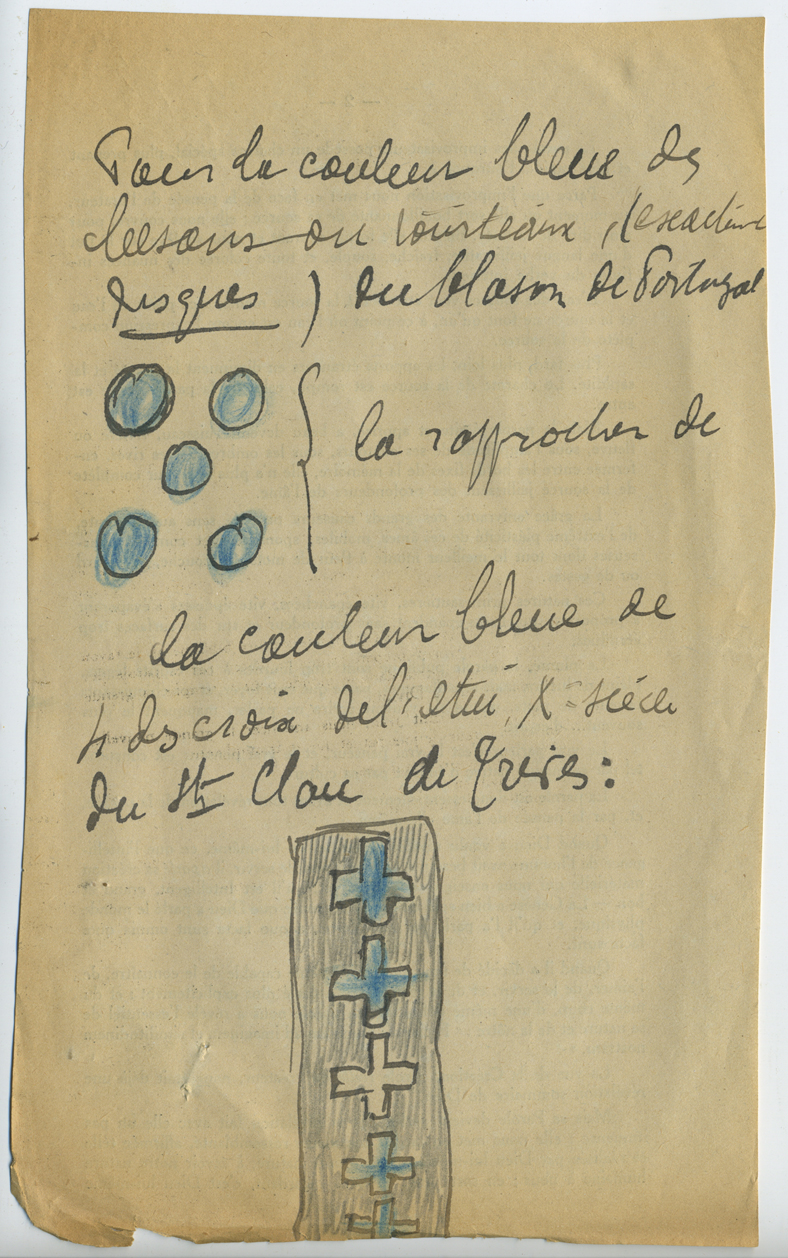 Pour la couleur bleue des
besans ou tourteaux, (exactemt
disques) du blason de Portugal
la rapprocher de
la couleur bleue de
4 des croix de l'étui, Xe siècle
du St Clou de Trèves: